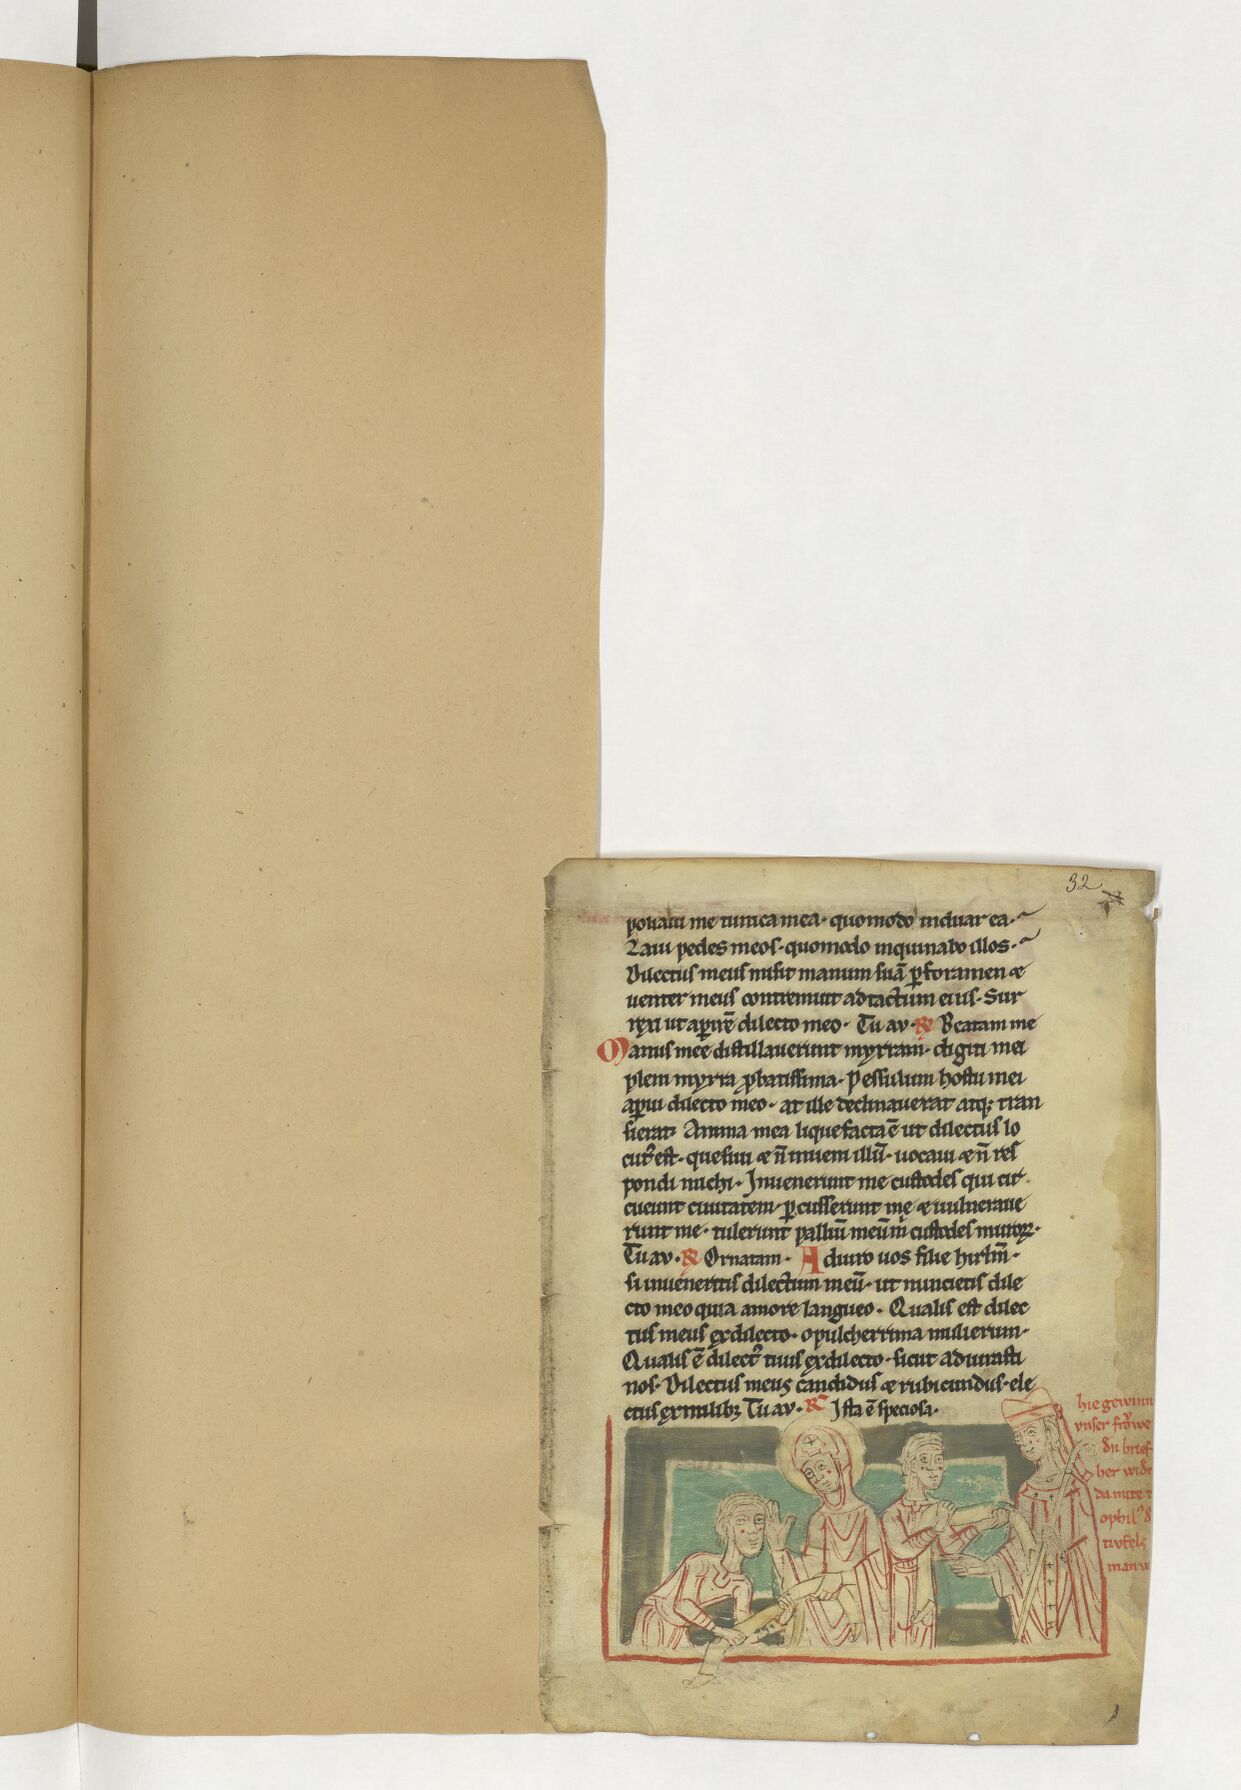 32
poliaui me tunica mea · quomodo induar ea ·
Laui pedes meos · quomodo inquinabo illos ·
Dilectus meus misit manum suā p̱ foramen &
uenter meus contremuit ad tactum eius · Sur
rexi ut ap̱irē dilecto meo · Tu av · R̃ Beatam me
Manus meę distillauerunt myrram · digiti mei
pleni myrra ꝓbatissima · Pessulum hostii mei
ap̱ui dilecto meo · at ille declinauerat atq; tran
sierat · Anima mea liquefacta ē ut dilectus lo
cut⁹ est · quesiui & ñ inueni illū · uocaui & ñ res
pondi michi · Inuenerunt me custodes qui cir
cueunt ciuitatem · p̱cusserunt me & uulneraue
runt me · tulerunt palliū meū m̄ custodes muroꝝ ·
Tu av · R̃ Ornatam · Adiuro uos filie hirlm̄ ·
si inueneritis dilectum meū · ut nuncietis dile
cto meo quia amore langueo · Qualis est dilec
tus meus ex dilecto · o pulcherrima mulierum ·
Qualis ē dilect⁹ tuus ex dilecto · sicut adiurasti
nos · Dilectus meus candidus & rubicundus · ele
ctus ex milibꝫ Tu av · R̃ Ista ē speciosa ·
hie gewinn
vnser frowe
dn brief
her wid
da mite t
ophil⁹ d
tivfels
man w